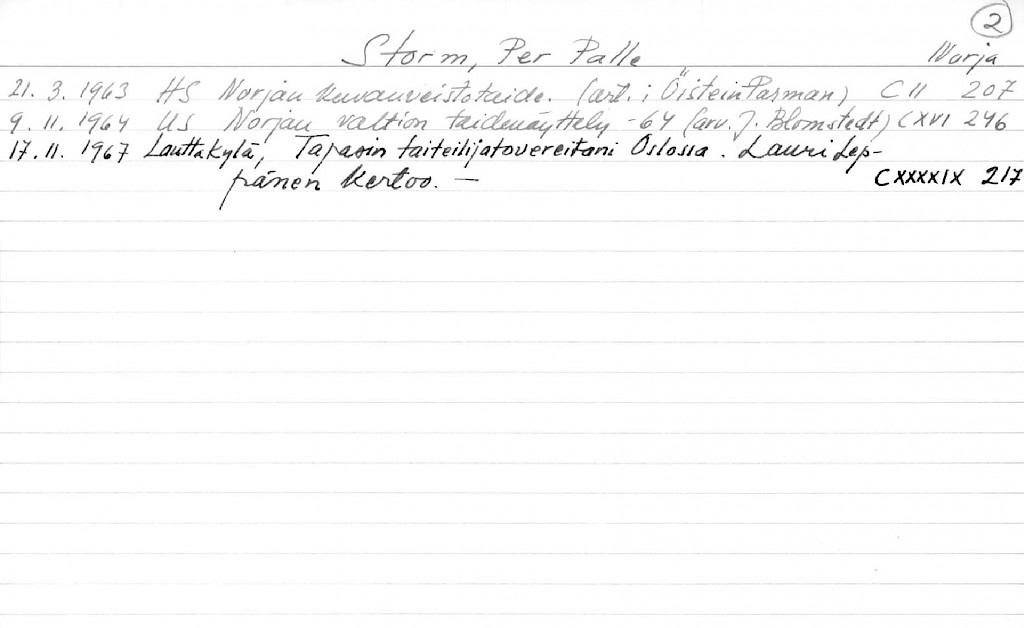 2
Storm, Per Palle Norja
21. 3. 1963 HS Norjan kuvanveistotaide. (art. i Öistein Parman) CII 207
9. 11. 1964 US Norjan valtion taidenäyttely -64 (arv. J. Blomstedt) CXVI 246
17. 11. 1967 Lauttakylä, Tapasin taiteilijatovereitani Oslossa. Lauri Lep-
pänen kertoo. — CXXXXIX 217